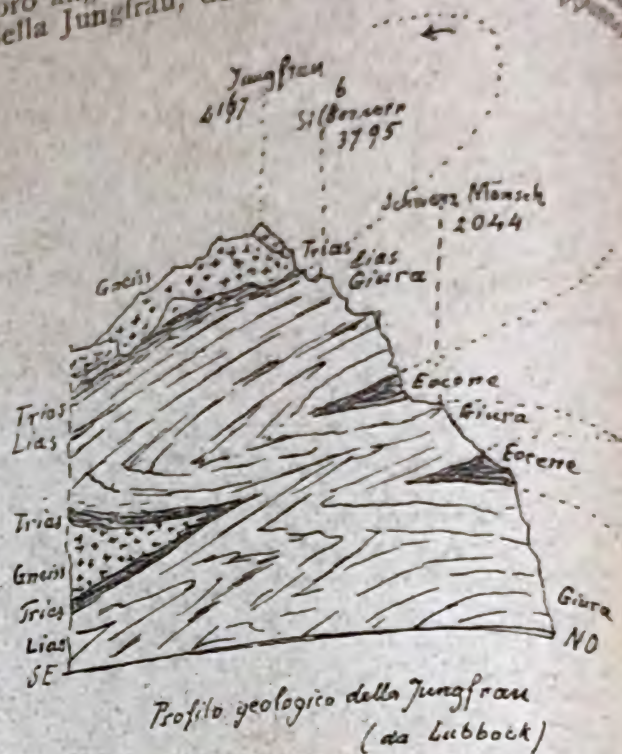 ella Jungfrau,
Jungfrau
4197
6
Silberhorn
3795
Schwarz Mönsch
2044
Gneiss
Trias
Lias
Giura
Eocene
Giura
Trias
Lias
Eocene
Trias
Gneiss
Trias
Giura
Lias
SE
NO
Profilo geologico della Jungfrau
(da Lubbock)